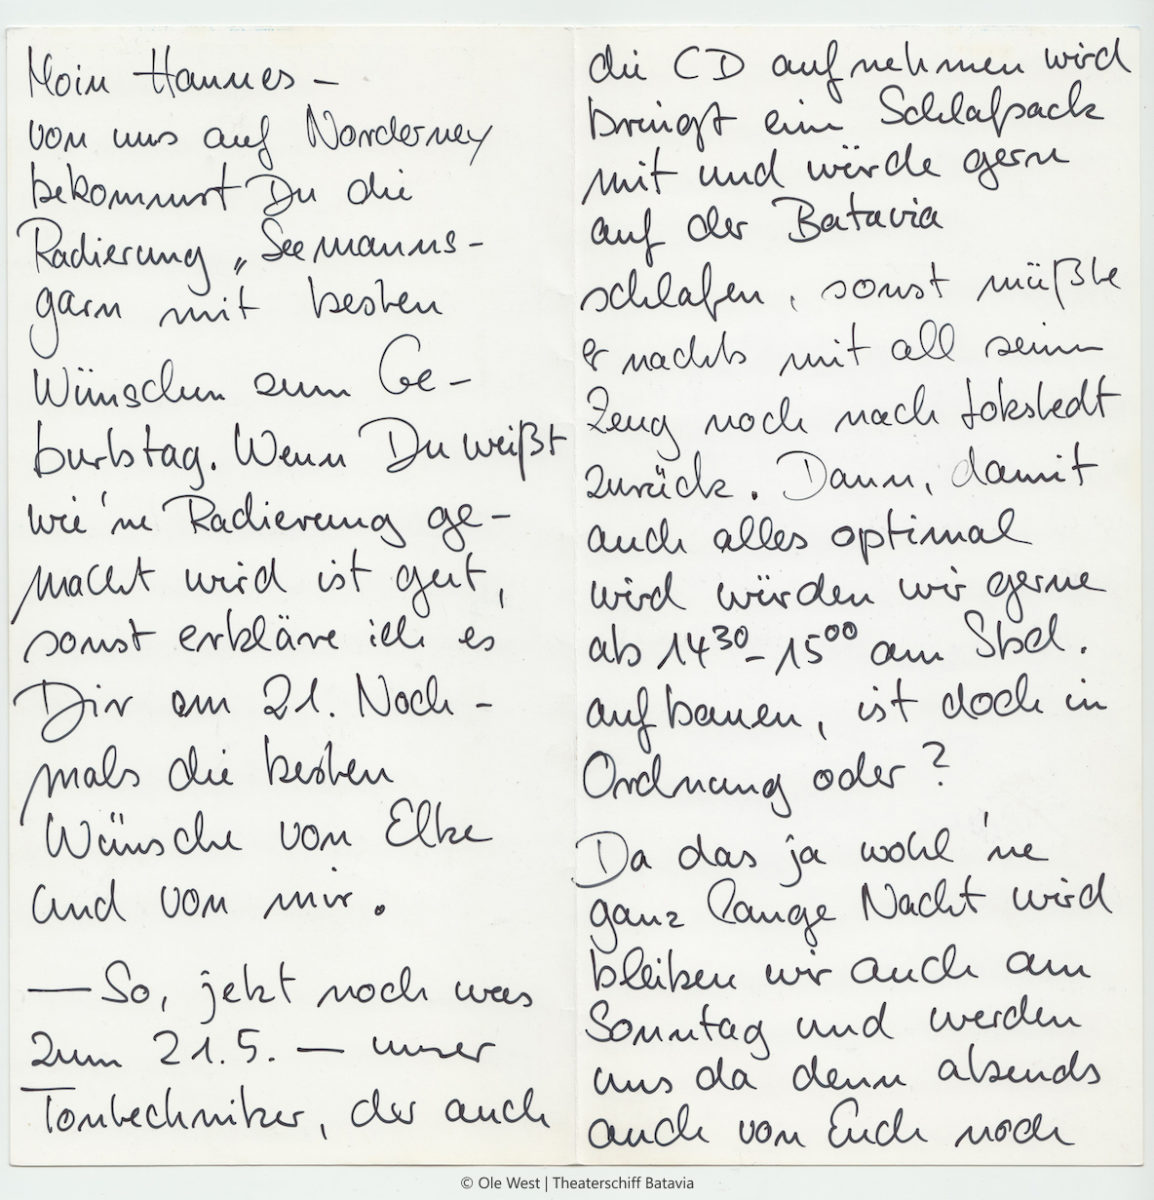 Moin Hannes –
von uns auf Norderney
bekommst Du die
Radierung „Seemanns-
garn mit besten
Wünschen zum Ge-
burtstag. Wenn Du weißt
wie 'ne Radierung ge-
macht wird ist gut,
sonst erkläre ich es
Dir am 21. Noch-
mals die besten
Wünsche von Elke
und von mir.
— So, jetzt noch was
zum 21.5. — unser
Tontechniker, der auch
die CD aufnehmen wird
bringt ein Schlafsack
mit und würde gern
auf der Batavia
schlafen, sonst müßte
er nachts mit all seim
Zeug noch nach Lokstedt
zurück. Dann, damit
auch alles optimal
wird würden wir gerne
ab 14³⁰ – 15⁰⁰ am Sbd.
aufbauen, ist doch in
Ordnung oder?
Da das ja wohl 'ne
ganz lange Nacht wird
bleiben wir auch am
Sonntag und werden
uns da denn abends
auch von Euch noch
© Ole West | Theaterschiff Batavia